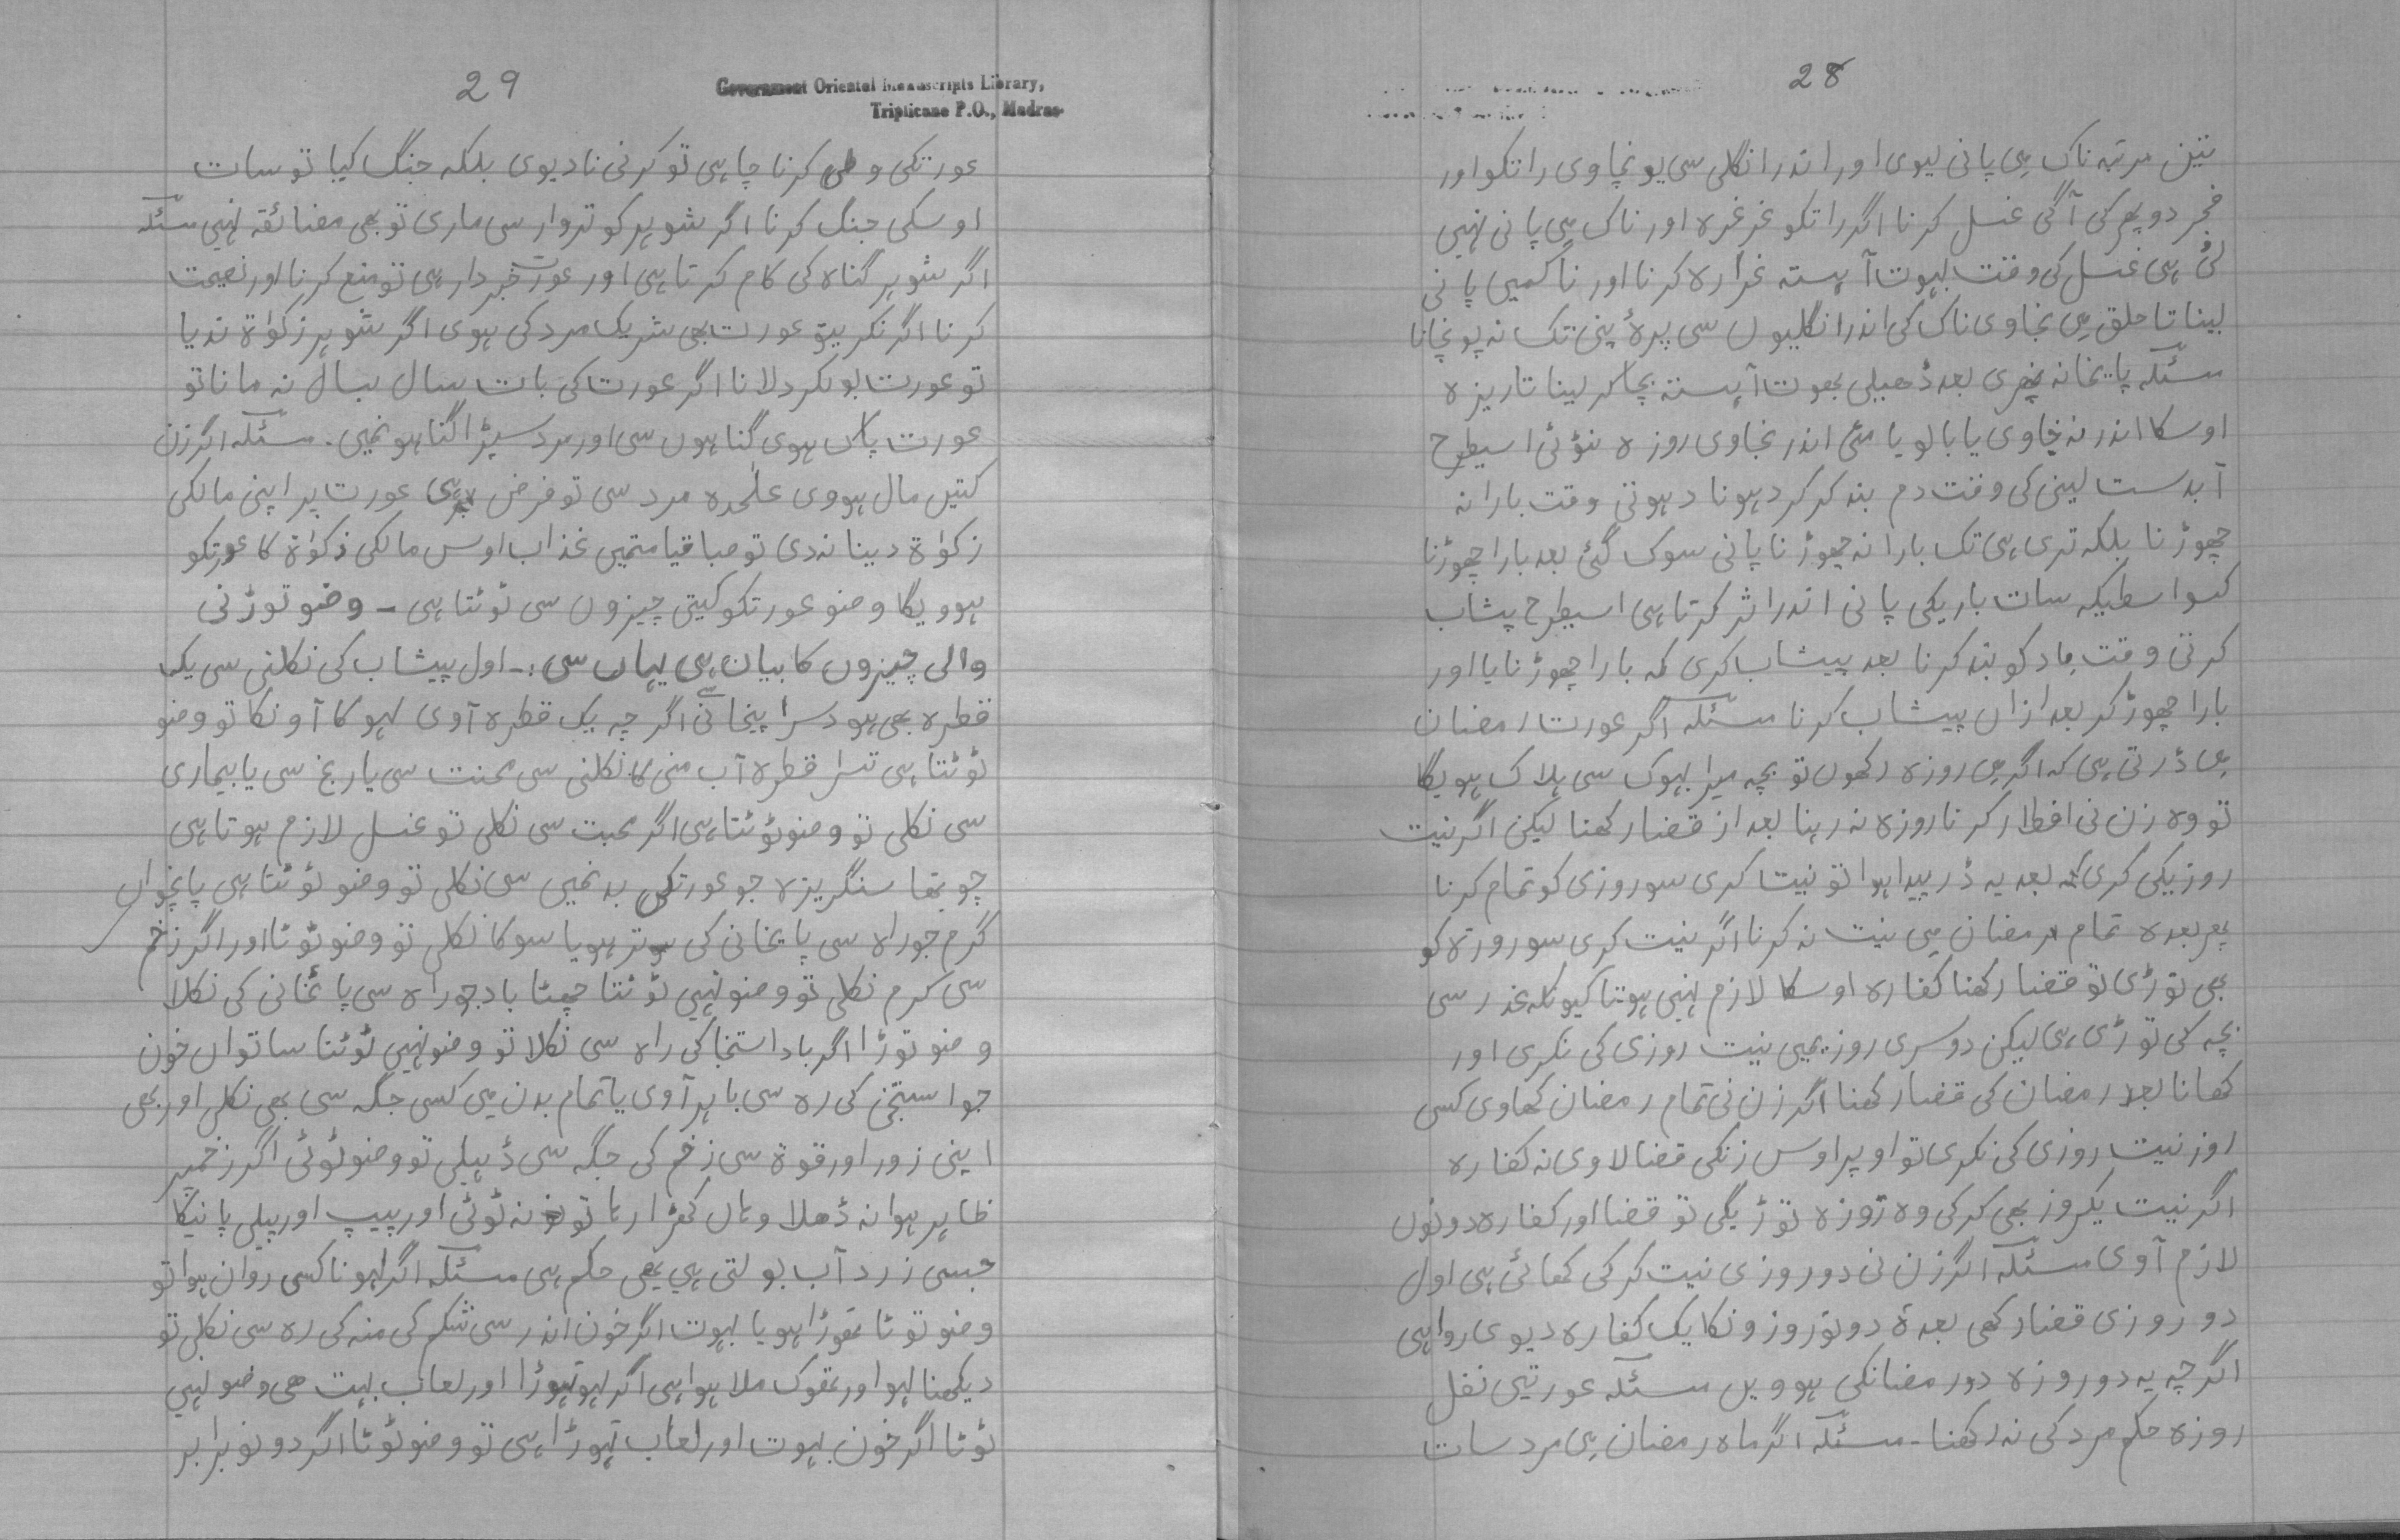 28
تین مرتبہ ناک مین پانی لیوی اور اندر انگلی سی پونچاوی راتکو اور
فجر دوپہر کی آگی غسل کرنا اگر راتکو غرغرہ اور ناک مین پانی نہین
لئی ہی غسل کی وقت بہوت آہستہ غرارہ کرنا اور ناکمین پانی
لینا تا حلق مین نجاوی ناک کی اندر انگلیوں سی پرۂ بینی تک نہ پونچانا
مسئلہ پایخانہ پھری بعد ڈھیلی بھوت آہستہ بچا کر لینا تا ریزہ
اوسکا اندر نہ جاوی یا بالو یا مٹی اندر نجاوی روزہ نٹوٹی اسیطرح
آبدست لینی کی وقت دم بند کر کر دہونا دہوتی وقت بارا نہ
چھوڑنا بلکہ تری ہی تک بارا نہ چھوڑنا پانی سوک گئی بعد بارا چھوڑنا
کسواسطیکہ سات باریکی پانی اندر اثر کرتا ہی اسیطرح پشاب
کرتی وقت باد کو بند کرنا بعد پیشاب کری کہ بارا چھوڑنا یا اور
بارا چھوڑ کر بعد ازاں پیشاب کرنا مسئلہ اگر عورت رمضان
مین ڈرتی ہی کہ اگر مین روزہ رکھوں تو بچہ میرا بہوک سی ہلاک ہویگا
تو وہ زن نی افطار کرنا روزہ نہ رہنا بعد از قضا رکھنا لیکن اگر نیت
روزیکی کری بعد یہ ڈر پیدا ہوا تو نیت کری سو روزی کو تمام کرنا
پھر بعدہ تمام رمضان مین نیت نہ کرنا اگر نیت کری سو روزہ کو
بھی توڑی تو قضا رکھنا کفارہ اوسکا لازم نہین ہوتا کیونکہ عذر سی
بچہ کی توڑی ہی لیکن دوسری روز نمین نیت روزی کی نکری اور
کھانا بعد رمضان کی قضا رکھنا اگر زن نی تمام رمضان کھاوی کسی
روز نیت روزی کی نکری تو اوپر اوس زنکی قضا لاوی نہ کفارہ
اگر نیت یکروز بھی کر کی وہ روزہ توڑیگی تو قضا اور کفارہ دونوں
لازم آوی مسئلہ اگر زن نی دو روزی نیت کر کی کھائی ہی اول
دو روزی قضا رکھی بعدۂ دونو روزونکا یک کفارہ دیوی روا ہی
اگرچہ یہ دو روزہ دو رمضانکی ہوویں مسئلہ عورتین نفل
روزہ حکم مرد کی نہ رکھنا۔ مسئلہ اگر ماہ رمضان مین مرد سات
29
Government Oriental Manuscripts Library,
Triplicane P.O., Madras
عورتکی وطی کرنا چاہی تو کرنی نا دیوی بلکہ جنگ کیا تو سات
اوسکی جنگ کرنا اگر شوہر کو تروار سی ماری تو بھی مضائقہ نہین مسئلہ
اگر شوہر گناہ کی کام کرتا ہی اور عورت خبردار ہی تو منع کرنا اور نصیحت
کرنا اگر نکری تو عورت بھی شریک مرد کی ہوی اگر شوہر زکوٰة ندیا
تو عورت بولکر دلانا اگر عورت کی بات سال بسال نہ مانا تو
عورت پاک ہوی گناہوں سی اور مرد سپڑا گناہو نمین۔ مسئلہ اگر زن
کتیں مال ہووی علٰحدہ مرد سی تو فرض ہی عورت پر اپنی مالکی
زکوٰة دینا ندی تو صبا قیامتمین عذاب اوس مالکی زکوٰة کا عورتکو
ہوویگا وضو عورتکو کیتی چیزوں سی ٹوٹتا ہی ۔ وضو توڑنی
والی چیزوں کا بیان ہی یہاں سی :۔ اول پیشاب کی نکلنی سی یک
قطرہ بھی ہو دسرا پیخانی سی اگرچہ یک قطرہ آوی لہو کا آونکا تو وضو
ٹوٹتا ہی تسرا قطرہ آب منی کا نکلنی سی محنت سی یا رنج سی یا بیماری
سی نکلی تو وضو ٹوٹتا ہی اگر محبت سی نکلی تو غسل لازم ہوتا ہی
چوتھا سنگریزہ جو عورتکی بدنمین سی نکلی تو وضو ٹوٹتا ہی پانچواں
کرم جو راہ سی پایخانی کی تر ہو یا سوکا نکلی تو وضو ٹوٹا اور اگر زخم
سی کرم نکلی تو وضو نہین ٹوٹتا چھٹا باد جو راہ سی پایخانی کی نکلا
وضو توڑا اگر باد استنجا کی راہ سی نکلا تو وضو نہین ٹوٹتا ساتواں خون
جو استنجی کی رہ سی باہر آوی یا تمام بدن مین کسی جگہ سی بھی نکلی اور بھی
اپنی زور اور قوة سی زخم کی جگہ سی ڈہلی تو وضو ٹوٹی اگر زخمپر
ظاہر ہوا نہ ڈھلا وہاں کھڑا رہا تو نہ ٹوٹی اور پیپ اور پیلی پانیکا
جسی زرد آب بولتی ہین یھی حکم ہی مسئلہ اگر لہو ناکسی رواں ہوا تو
وضو توٹا تھوڑا ہو یا بہوت اگر خون اندر سی شکم کی منہ کی رہ سی نکلی تو
دیکھنا لہو اور تھوک ملا ہوا ہی اگر لہو تہوڑا اور لعاب بہت ھی وضو نہین
ٹوٹا اگر خون بہوت اور لعاب تہوڑا ہی تو وضو ٹوٹا اگر دونو برابر